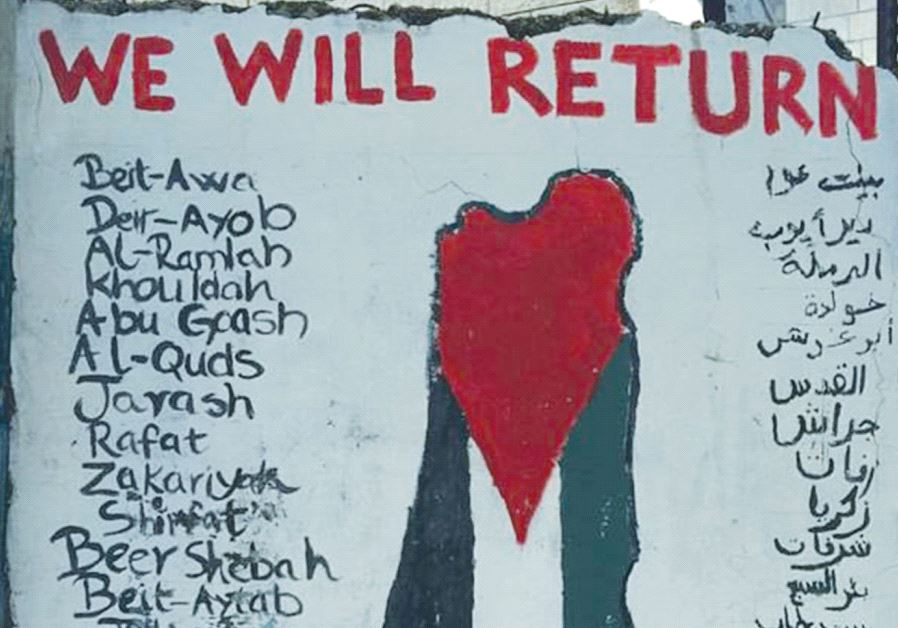 WE WILL RETURN
Beit-Awa
Deir-Ayob
Al-Ramlah
Khouldah
Abu Goash
Al-Quds
Jarash
Rafat
Zakariyah
Beer Shebah
Beit-Aytab
بيت عوا
دير أيوب
الرملة
خولدة
أبو غوش
القدس
جراش
رفات
زكريا
شرفات
بئر السبع